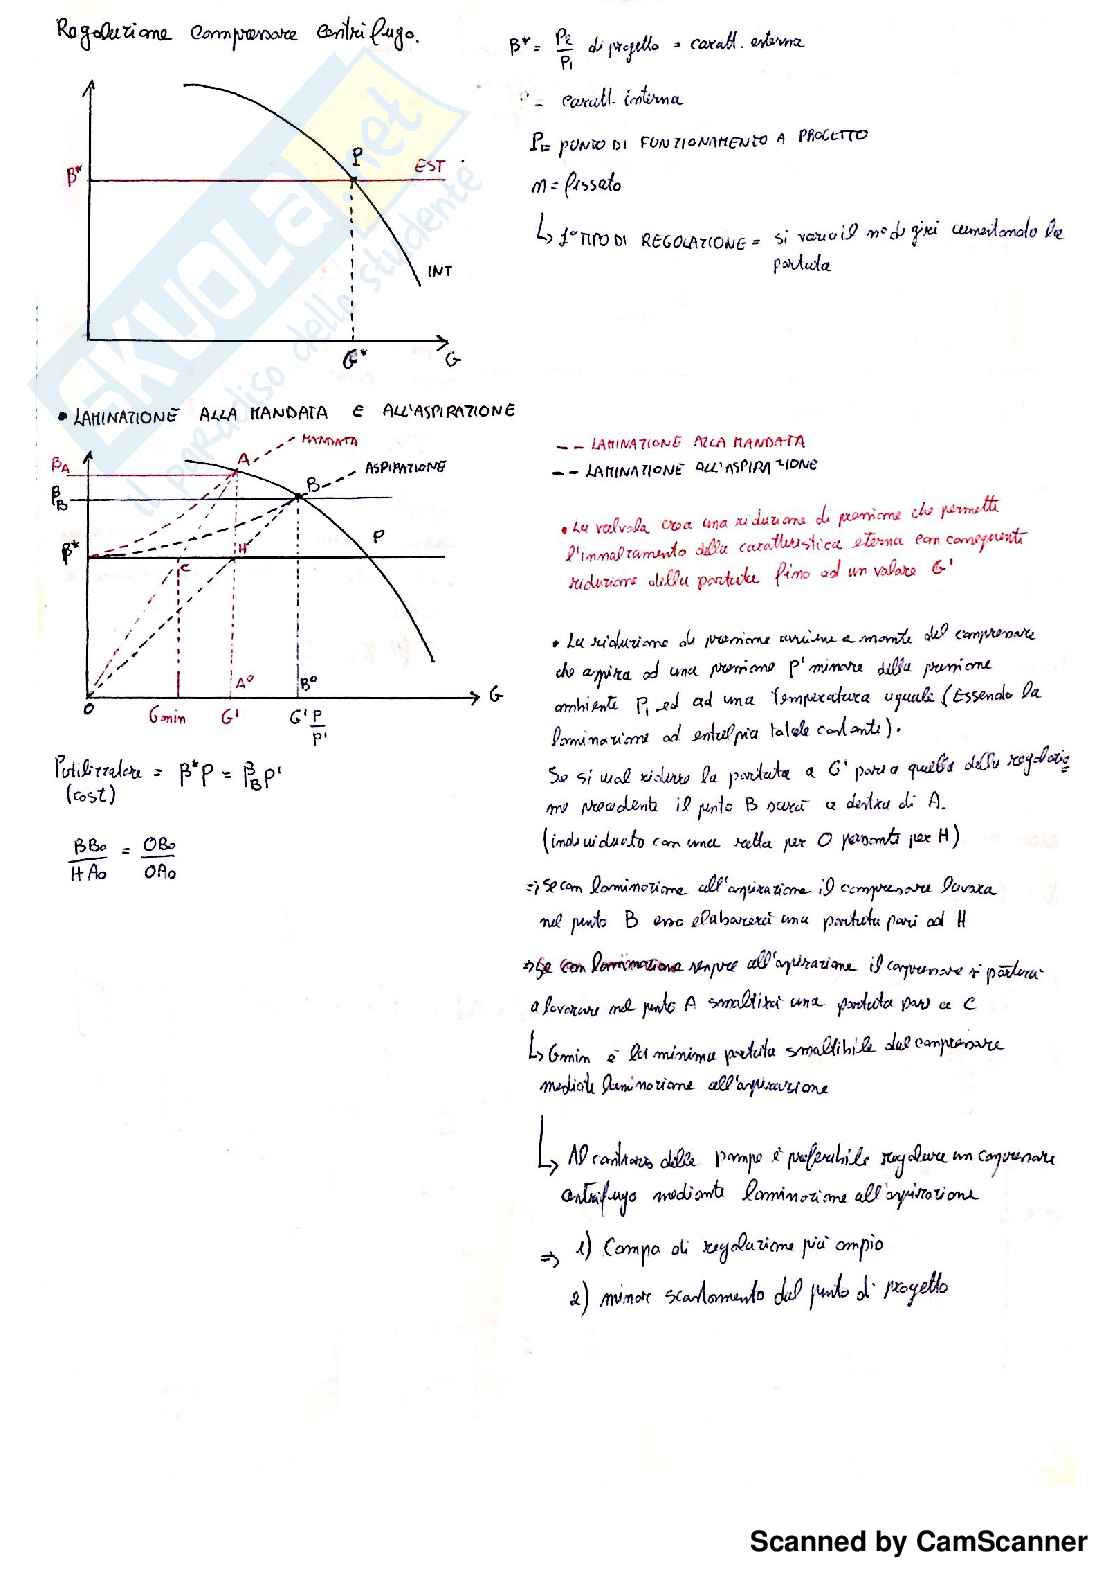 Regolazione compressore centrifugo.
β* = P2/P1 di progetto = caratt. esterna
= caratt. interna
P = PUNTO DI FUNZIONAMENTO A PROGETTO
n = fissato
↳ 1° TIPO DI REGOLAZIONE = si varia il n° di giri aumentando la
portata
β*
P
EST
INT
G*
G
• LAMINAZIONE ALLA MANDATA E ALL'ASPIRAZIONE
MANDATA
ASPIRAZIONE
βA
βB
β*
A
B
P
H
C
A°
B°
O
Gmin
G'
G' P/P'
G
-- LAMINAZIONE ALLA MANDATA
-- LAMINAZIONE ALL'ASPIRAZIONE
• La valvola crea una riduzione di pressione che permette
l'innalzamento della caratteristica esterna con conseguente
riduzione della portata fino ad un valore G'
• La riduzione di pressione avviene a monte del compressore
che aspira ad una pressione P' minore della pressione
ambiente P1 ed ad una temperatura uguale (Essendo la
laminazione ad entalpia totale costante).
Se si vuol ridurre la portata a G' pari a quella della regolazio
ne precedente il punto B sarà a destra di A.
(individuato con una retta per O passante per H)
Putilizzatore = β*P = βB P'
(cost)
BBo/HAo = OBo/OAo
=> Se con laminazione all'aspirazione il compressore lavora
nel punto B esso elaborerà una portata pari ad H
=> Se con laminazione sempre all'aspirazione il compressore si porterà
a lavorare nel punto A smaltirà una portata pari a C
↳ Gmin è la minima portata smaltibile dal compressore
mediante laminazione all'aspirazione
↳ Al contrario delle pompe è preferibile regolare un compressore
centrifugo mediante laminazione all'aspirazione
=> 1) Campo di regolazione più ampio
2) minore scostamento dal punto di progetto
SKUOLA.net
il paradiso dello studente
Scanned by CamScanner